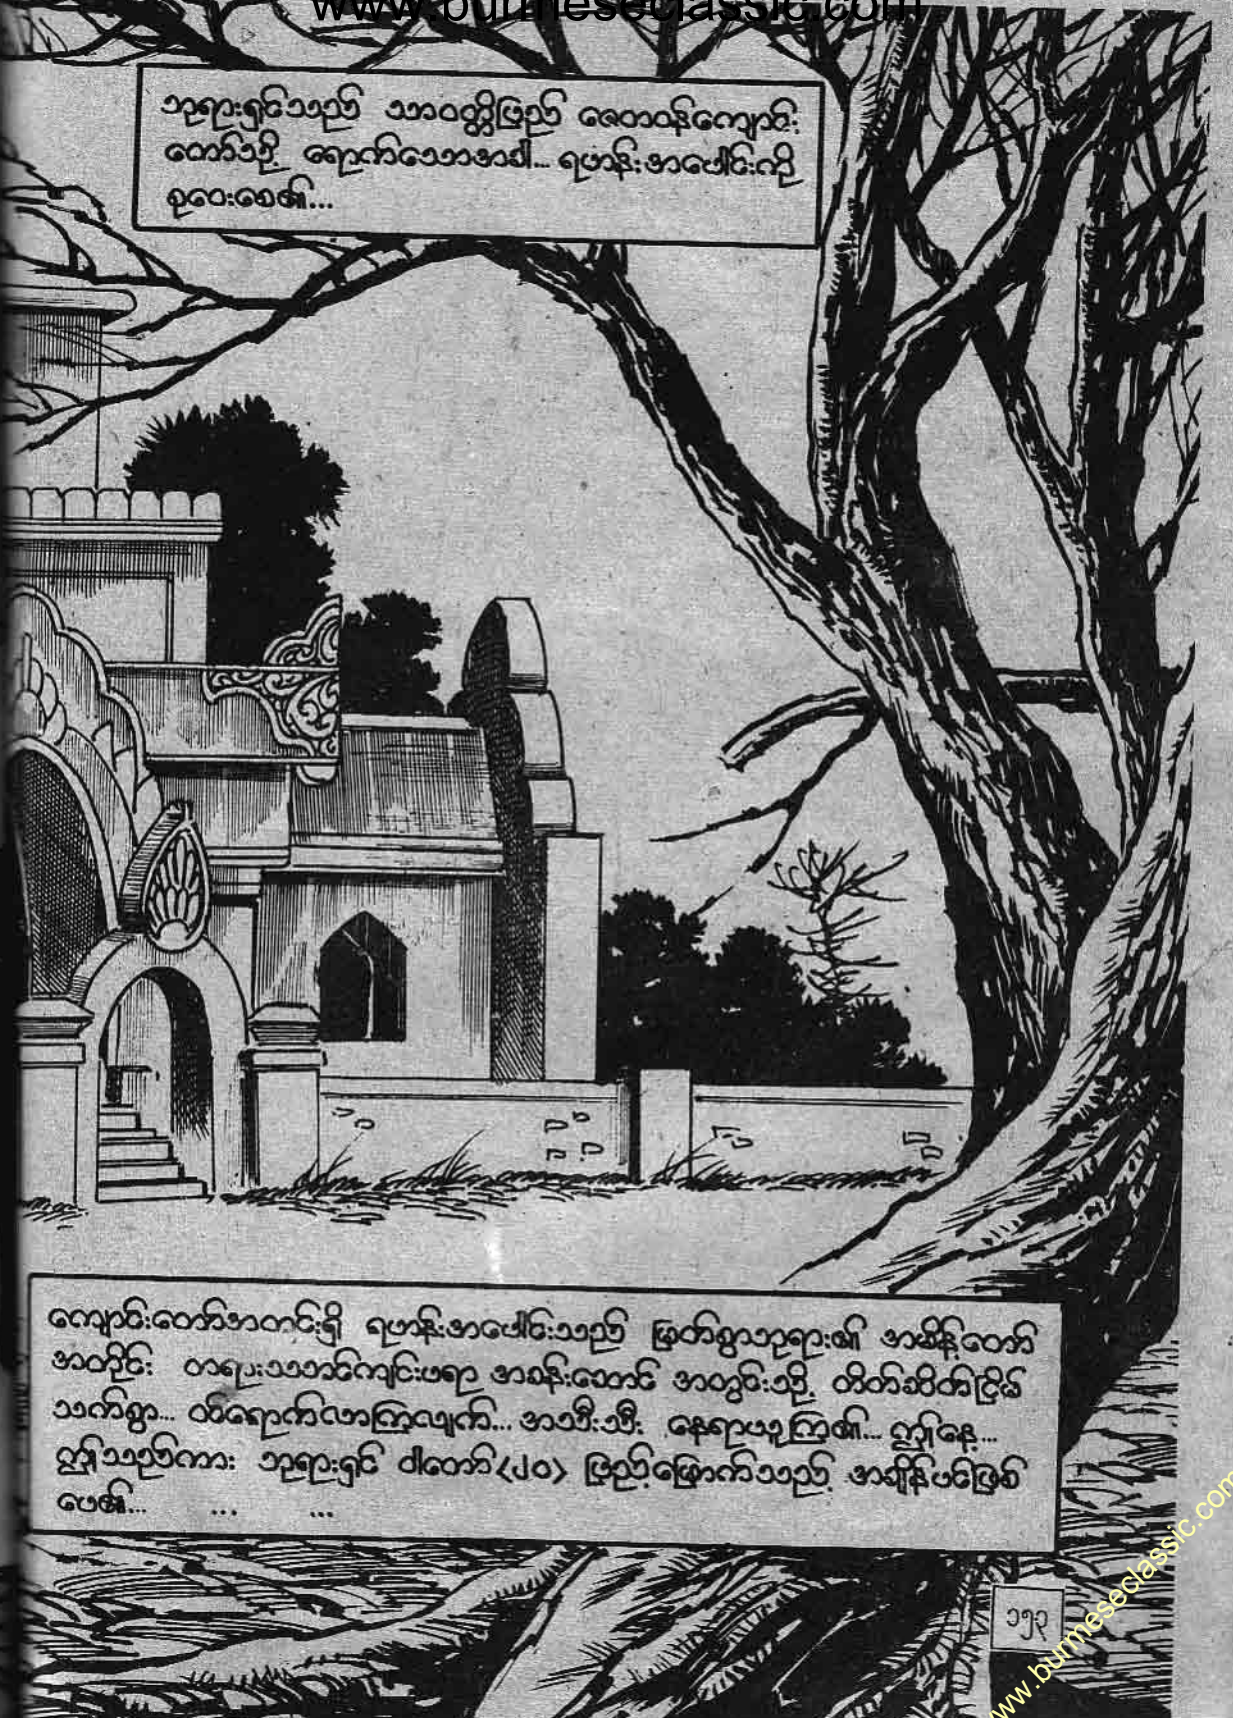 www.burmeseclassic.com
ဘုရားရှင်သည် သာဝတ္ထိပြည် ဇေတဝန်ကျောင်း
တော်သို့ ရောက်သောအခါ... ရဟန်းအပေါင်းကို
စုဝေးစေ၏...
ကျောင်းတော်အတင်းရှိ ရဟန်းအပေါင်းသည် မြတ်စွာဘုရား၏ အမိန့်တော်
အတိုင်း တရားသဘင်ကျင်းပရာ အခန်းဆောင် အတွင်းသို့ တိတ်ဆိတ်ငြိမ်
သက်စွာ... ထိရောက်လာကြလျက်... အသီးသီး နေရာယူကြ၏... ဤနေ့...
ဤသည်ကား ဘုရားရှင် ဝါတော်<၂၀> ပြည့်မြောက်သည့် အချိန်ပင်ဖြစ်
ပေ၏... ... ...
၁၅၃
www.burmeseclassic.com